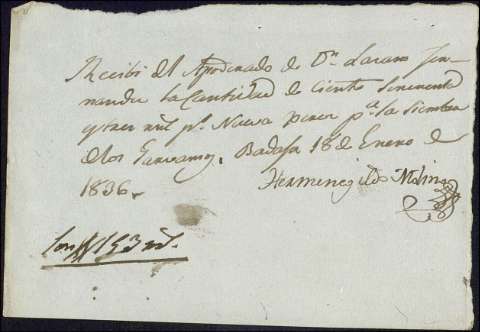 Recibi del Apoderado de Dn Lazaro Fer-
nandez la Cantidad de ciento sincuenta
y tres rs pr Nueva para pa la siembra
de los Garvanzos. Badajz 18 de Enero de
1836.
Hermenegildo Molina
Son 153 rs.